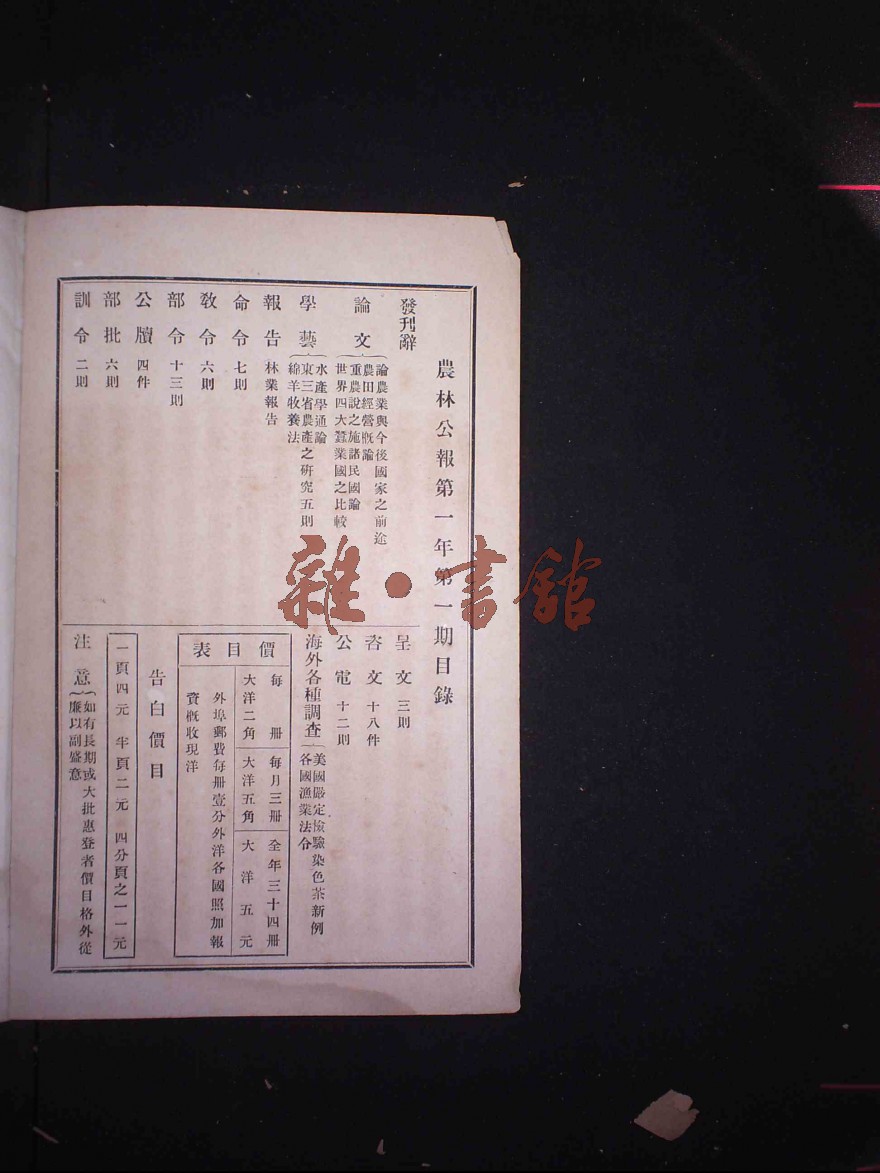 農林公報第一年第一期目錄
發刊辭
論文
論農業與今後國家之前途
農田經營概論
重農說之施諸民國論
世界四大蠶業國之比較
學藝
水產學通論
東三省農產之研究五則
綿羊牧養法
報告 林業報告
命令 七則
教令 六則
部令 十三則
公牘 四件
部批 六則
訓令 二則
呈文 三則
咨文 十八件
公電 十二則
海外各種調查
美國嚴定檢驗染色茶新例
各國漁業法令
價目表
每冊 每月三冊 全年三十四冊
大洋二角 大洋五角 大洋五元
外埠郵費每冊壹分外洋各國照加報
資概收現洋
告白價目
一頁四元 半頁二元 四分頁之一一元
注意
如有長期或大批惠登者價目格外從
廉以副盛意
雜·書舘